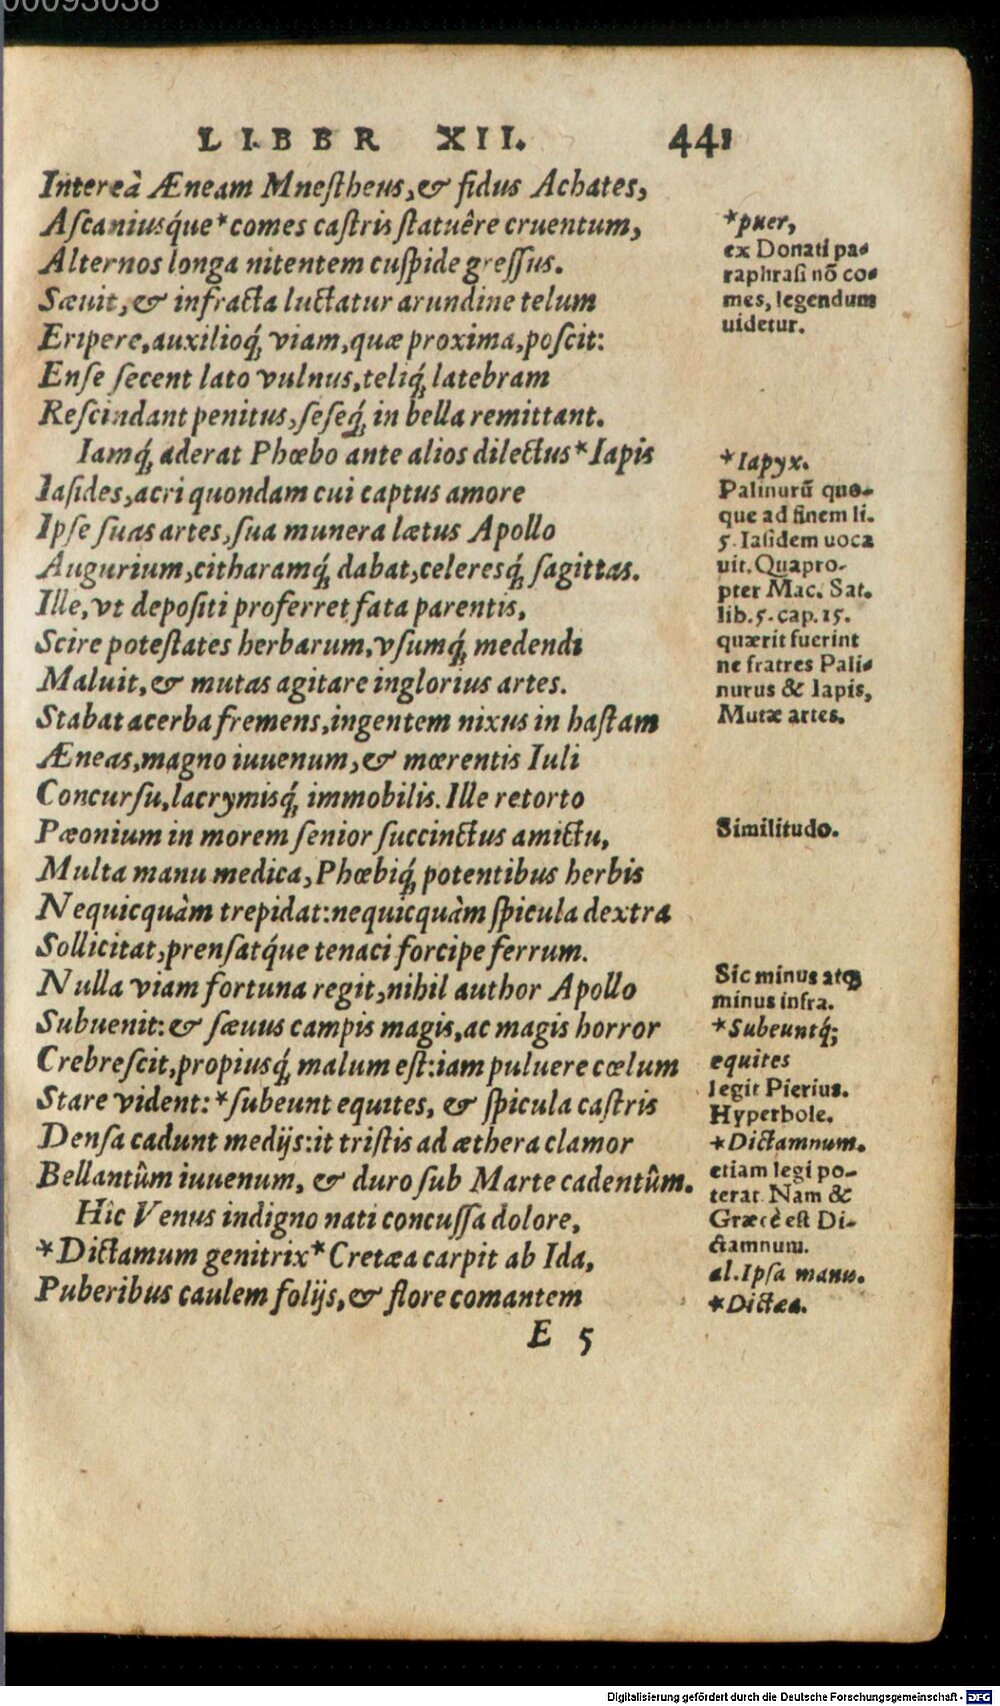 00093038
LIBER XII. 441
Intereà Æneam Mnestheus, & fidus Achates,
Ascaniusq́ue * comes castris statuêre cruentum,
Alternos longa nitentem cuspide gressus.
Sæuit, & infracta luctatur arundine telum
Eripere, auxilioq́; viam, quæ proxima, poscit:
Ense secent lato vulnus, teliq́; latebram
Rescindant penitus, seseq́; in bella remittant.
Iamq́; aderat Phœbo ante alios dilectus * Iapis
Iasides, acri quondam cui captus amore
Ipse suas artes, sua munera lætus Apollo
Augurium, citharamq́; dabat, celeresq́; sagittas.
Ille, vt depositi proferret fata parentis,
Scire potestates herbarum, vsumq́; medendi
Maluit, & mutas agitare inglorius artes.
Stabat acerba fremens, ingentem nixus in hastam
Æneas, magno iuuenum, & mœrentis Iuli
Concursu, lacrymisq́; immobilis. Ille retorto
Pæonium in morem senior succinctus amictu,
Multa manu medica, Phœbiq́; potentibus herbis
Nequicquàm trepidat: nequicquàm spicula dextra
Sollicitat, prensatq́ue tenaci forcipe ferrum.
Nulla viam fortuna regit, nihil author Apollo
Subuenit: & sæuus campis magis, ac magis horror
Crebrescit, propiusq́; malum est: iam puluere cœlum
Stare vident: * subeunt equites, & spicula castris
Densa cadunt medijs: it tristis ad æthera clamor
Bellantûm iuuenum, & duro sub Marte cadentûm.
Hîc Venus indigno nati concussa dolore,
* Dictamum genitrix * Cretæa carpit ab Ida,
Puberibus caulem folijs, & flore comantem
E 5
* puer,
ex Donati pa-
raphrasi nõ co-
mes, legendum
uidetur.
* Iapyx.
Palinurũ quo-
que ad finem li.
5. Iasidem uoca
uit. Quapro-
pter Mac. Sat.
lib. 5. cap. 15.
quærit fuerint
ne fratres Pali-
nurus & Iapis,
Mutæ artes.
Similitudo.
Sic minus atq;
minus infra.
* Subeuntq́;
equites
legit Pierius.
Hyperbole.
* Dictamnum.
etiam legi po-
terat. Nam &
Græcè est Di-
ctamnum.
al. Ipsa manu.
* Dictæa.
Digitalisierung gefördert durch die Deutsche Forschungsgemeinschaft - DFG